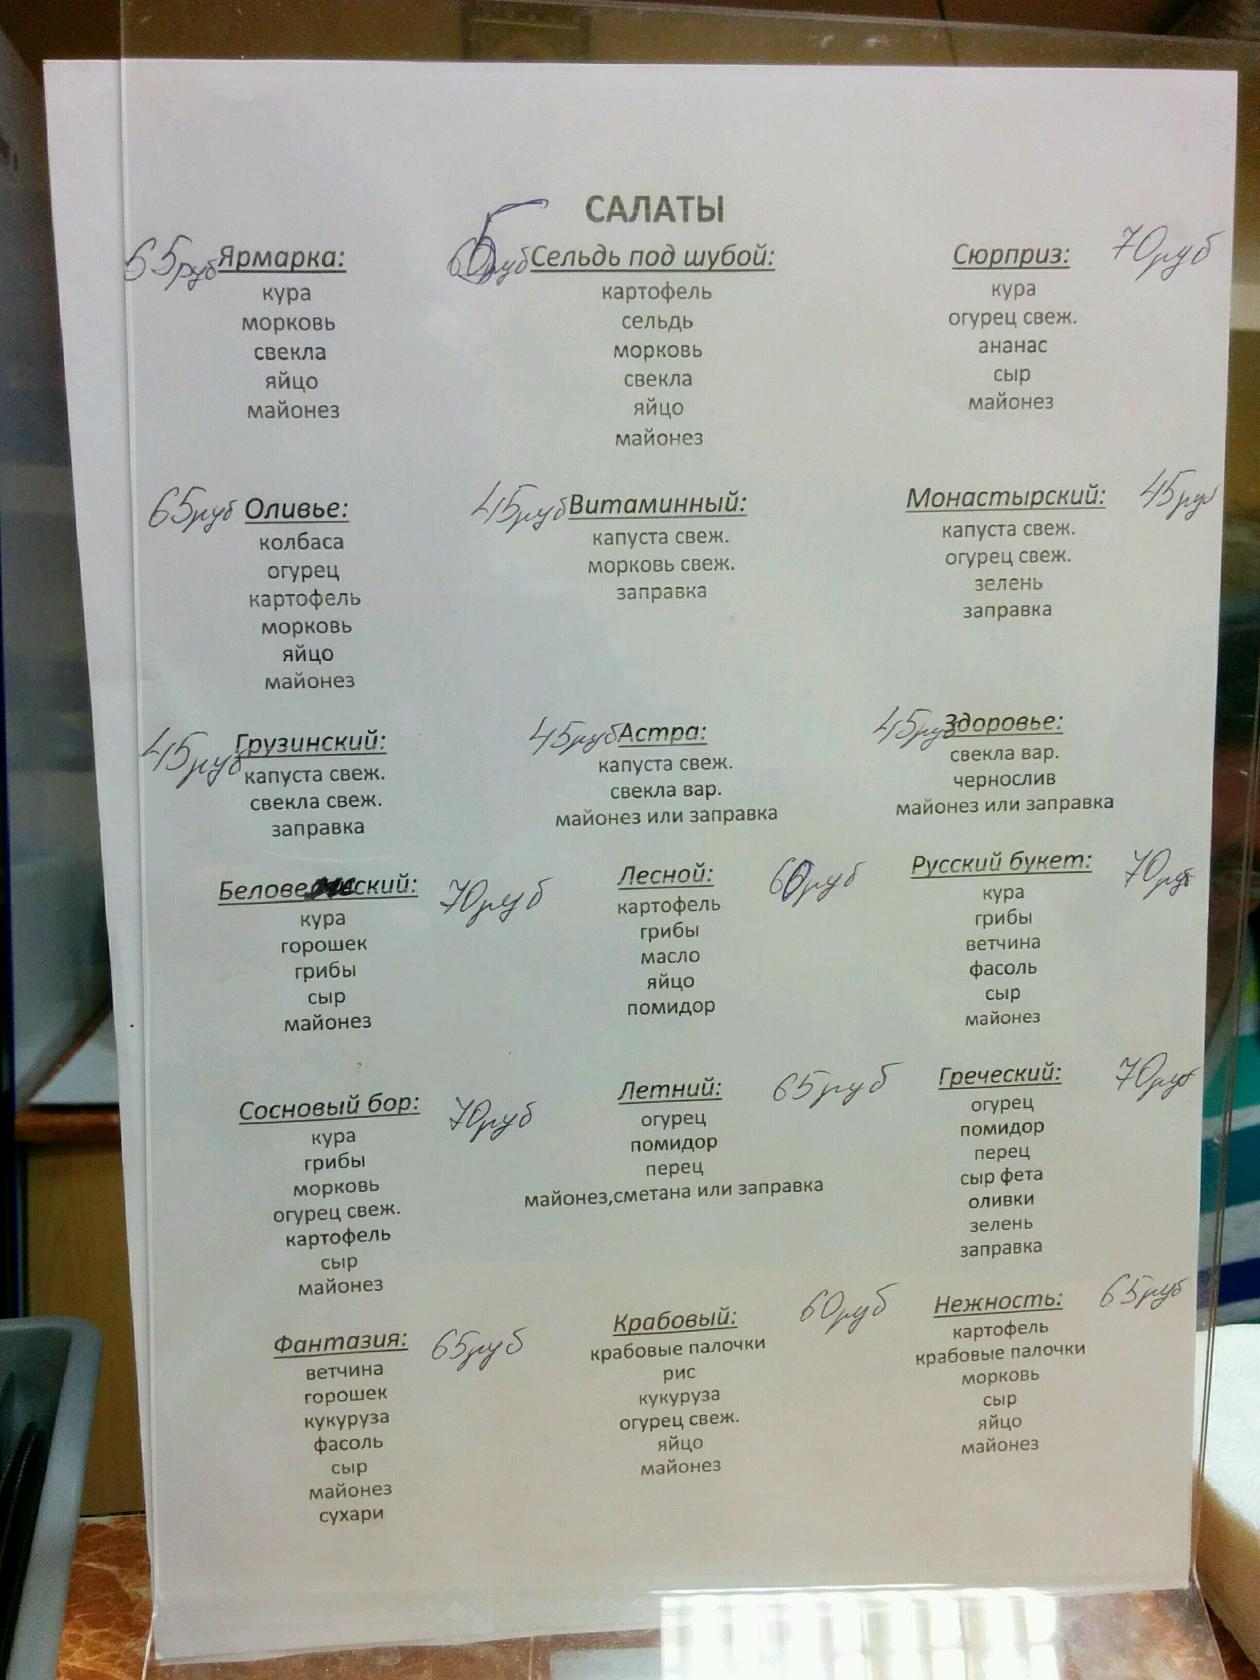 САЛАТЫ
65руб Ярмарка:
кура
морковь
свекла
яйцо
майонез
65руб Сельдь под шубой:
картофель
сельдь
морковь
свекла
яйцо
майонез
Сюрприз: 70руб
кура
огурец свеж.
ананас
сыр
майонез
65руб Оливье:
колбаса
огурец
картофель
морковь
яйцо
майонез
45руб Витаминный:
капуста свеж.
морковь свеж.
заправка
Монастырский: 45руб
капуста свеж.
огурец свеж.
зелень
заправка
45руб Грузинский:
капуста свеж.
свекла свеж.
заправка
45руб Астра:
капуста свеж.
свекла вар.
майонез или заправка
45руб Здоровье:
свекла вар.
чернослив
майонез или заправка
Белове ский: 70руб
кура
горошек
грибы
сыр
майонез
Лесной: 60руб
картофель
грибы
масло
яйцо
помидор
Русский букет: 70руб
кура
грибы
ветчина
фасоль
сыр
майонез
Сосновый бор: 70руб
кура
грибы
морковь
огурец свеж.
картофель
сыр
майонез
Летний: 65руб
огурец
помидор
перец
майонез,сметана или заправка
Греческий: 70руб
огурец
помидор
перец
сыр фета
оливки
зелень
заправка
Фантазия: 65руб
ветчина
горошек
кукуруза
фасоль
сыр
майонез
сухари
Крабовый: 60руб
крабовые палочки
рис
кукуруза
огурец свеж.
яйцо
майонез
Нежность: 65руб
картофель
крабовые палочки
морковь
сыр
яйцо
майонез